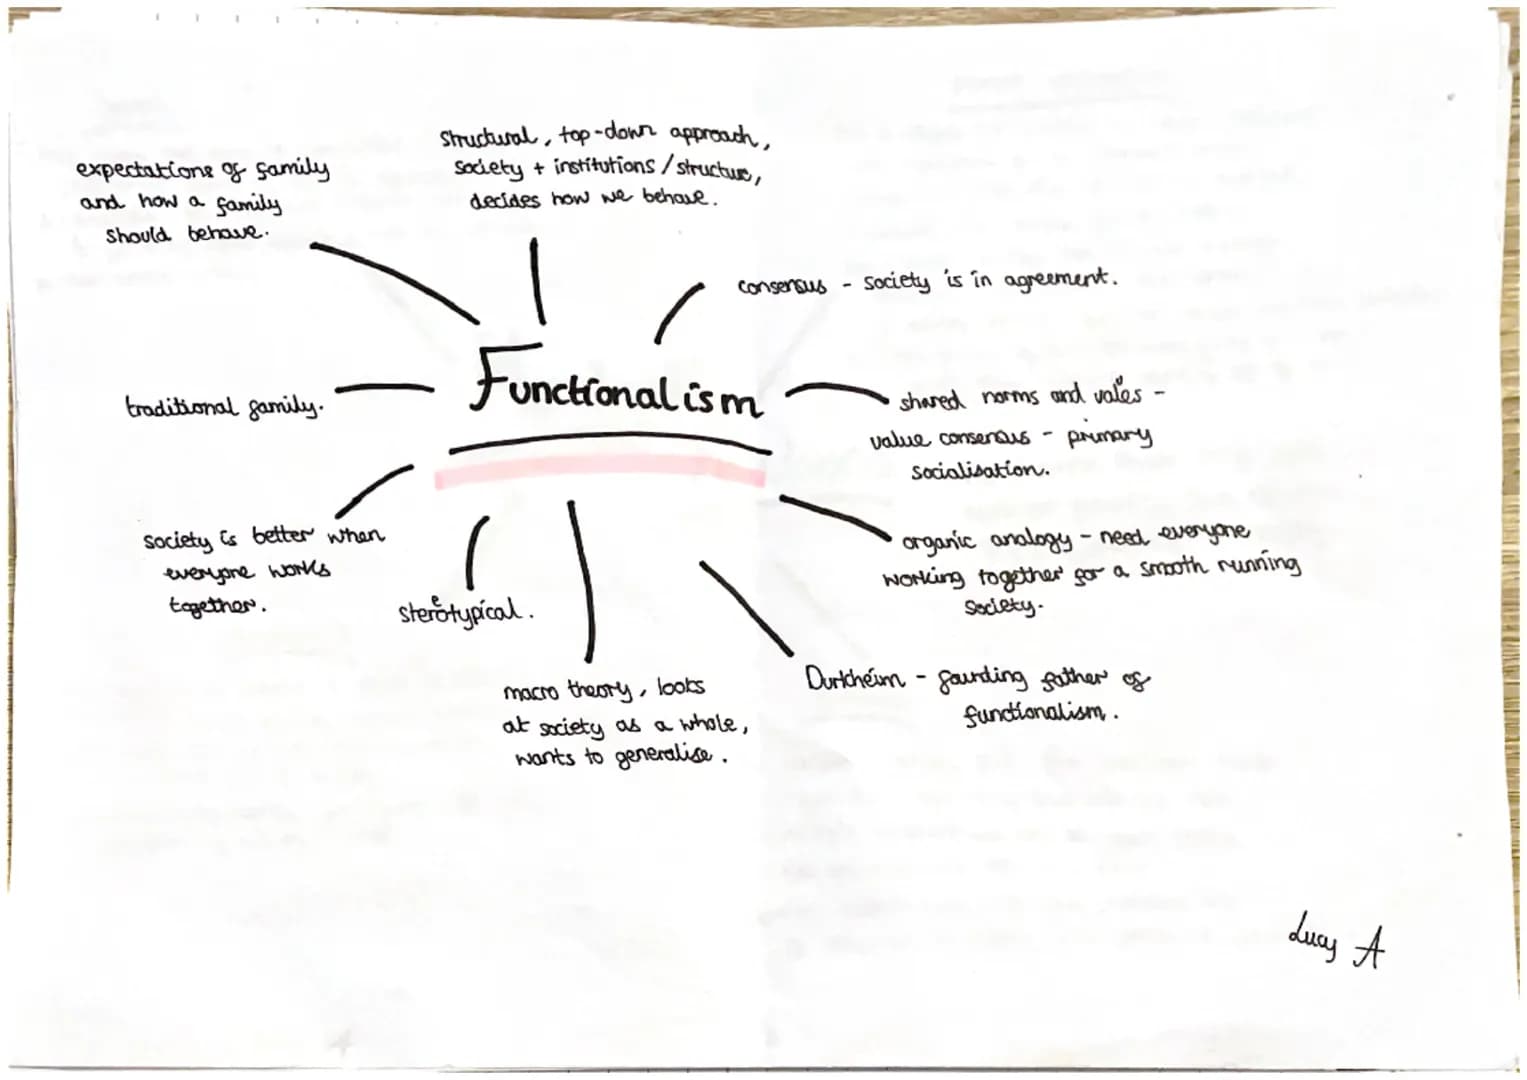 structural, top-down approach,
society + institutions / structure,
decides how we behave.
expectations of family
and how a family
should behave.
consensus - society is in agreement.
Functionalism
traditional family.
shared norms and values -
value consensus - primary
socialisation.
society is better when
everyone works
together.
stereotypical.
organic analogy - need everyone
working together for a smooth running
society.
macro theory, looks
at society as a whole,
wants to generalise.
Durkheim - founding father of
functionalism.
Lucy A